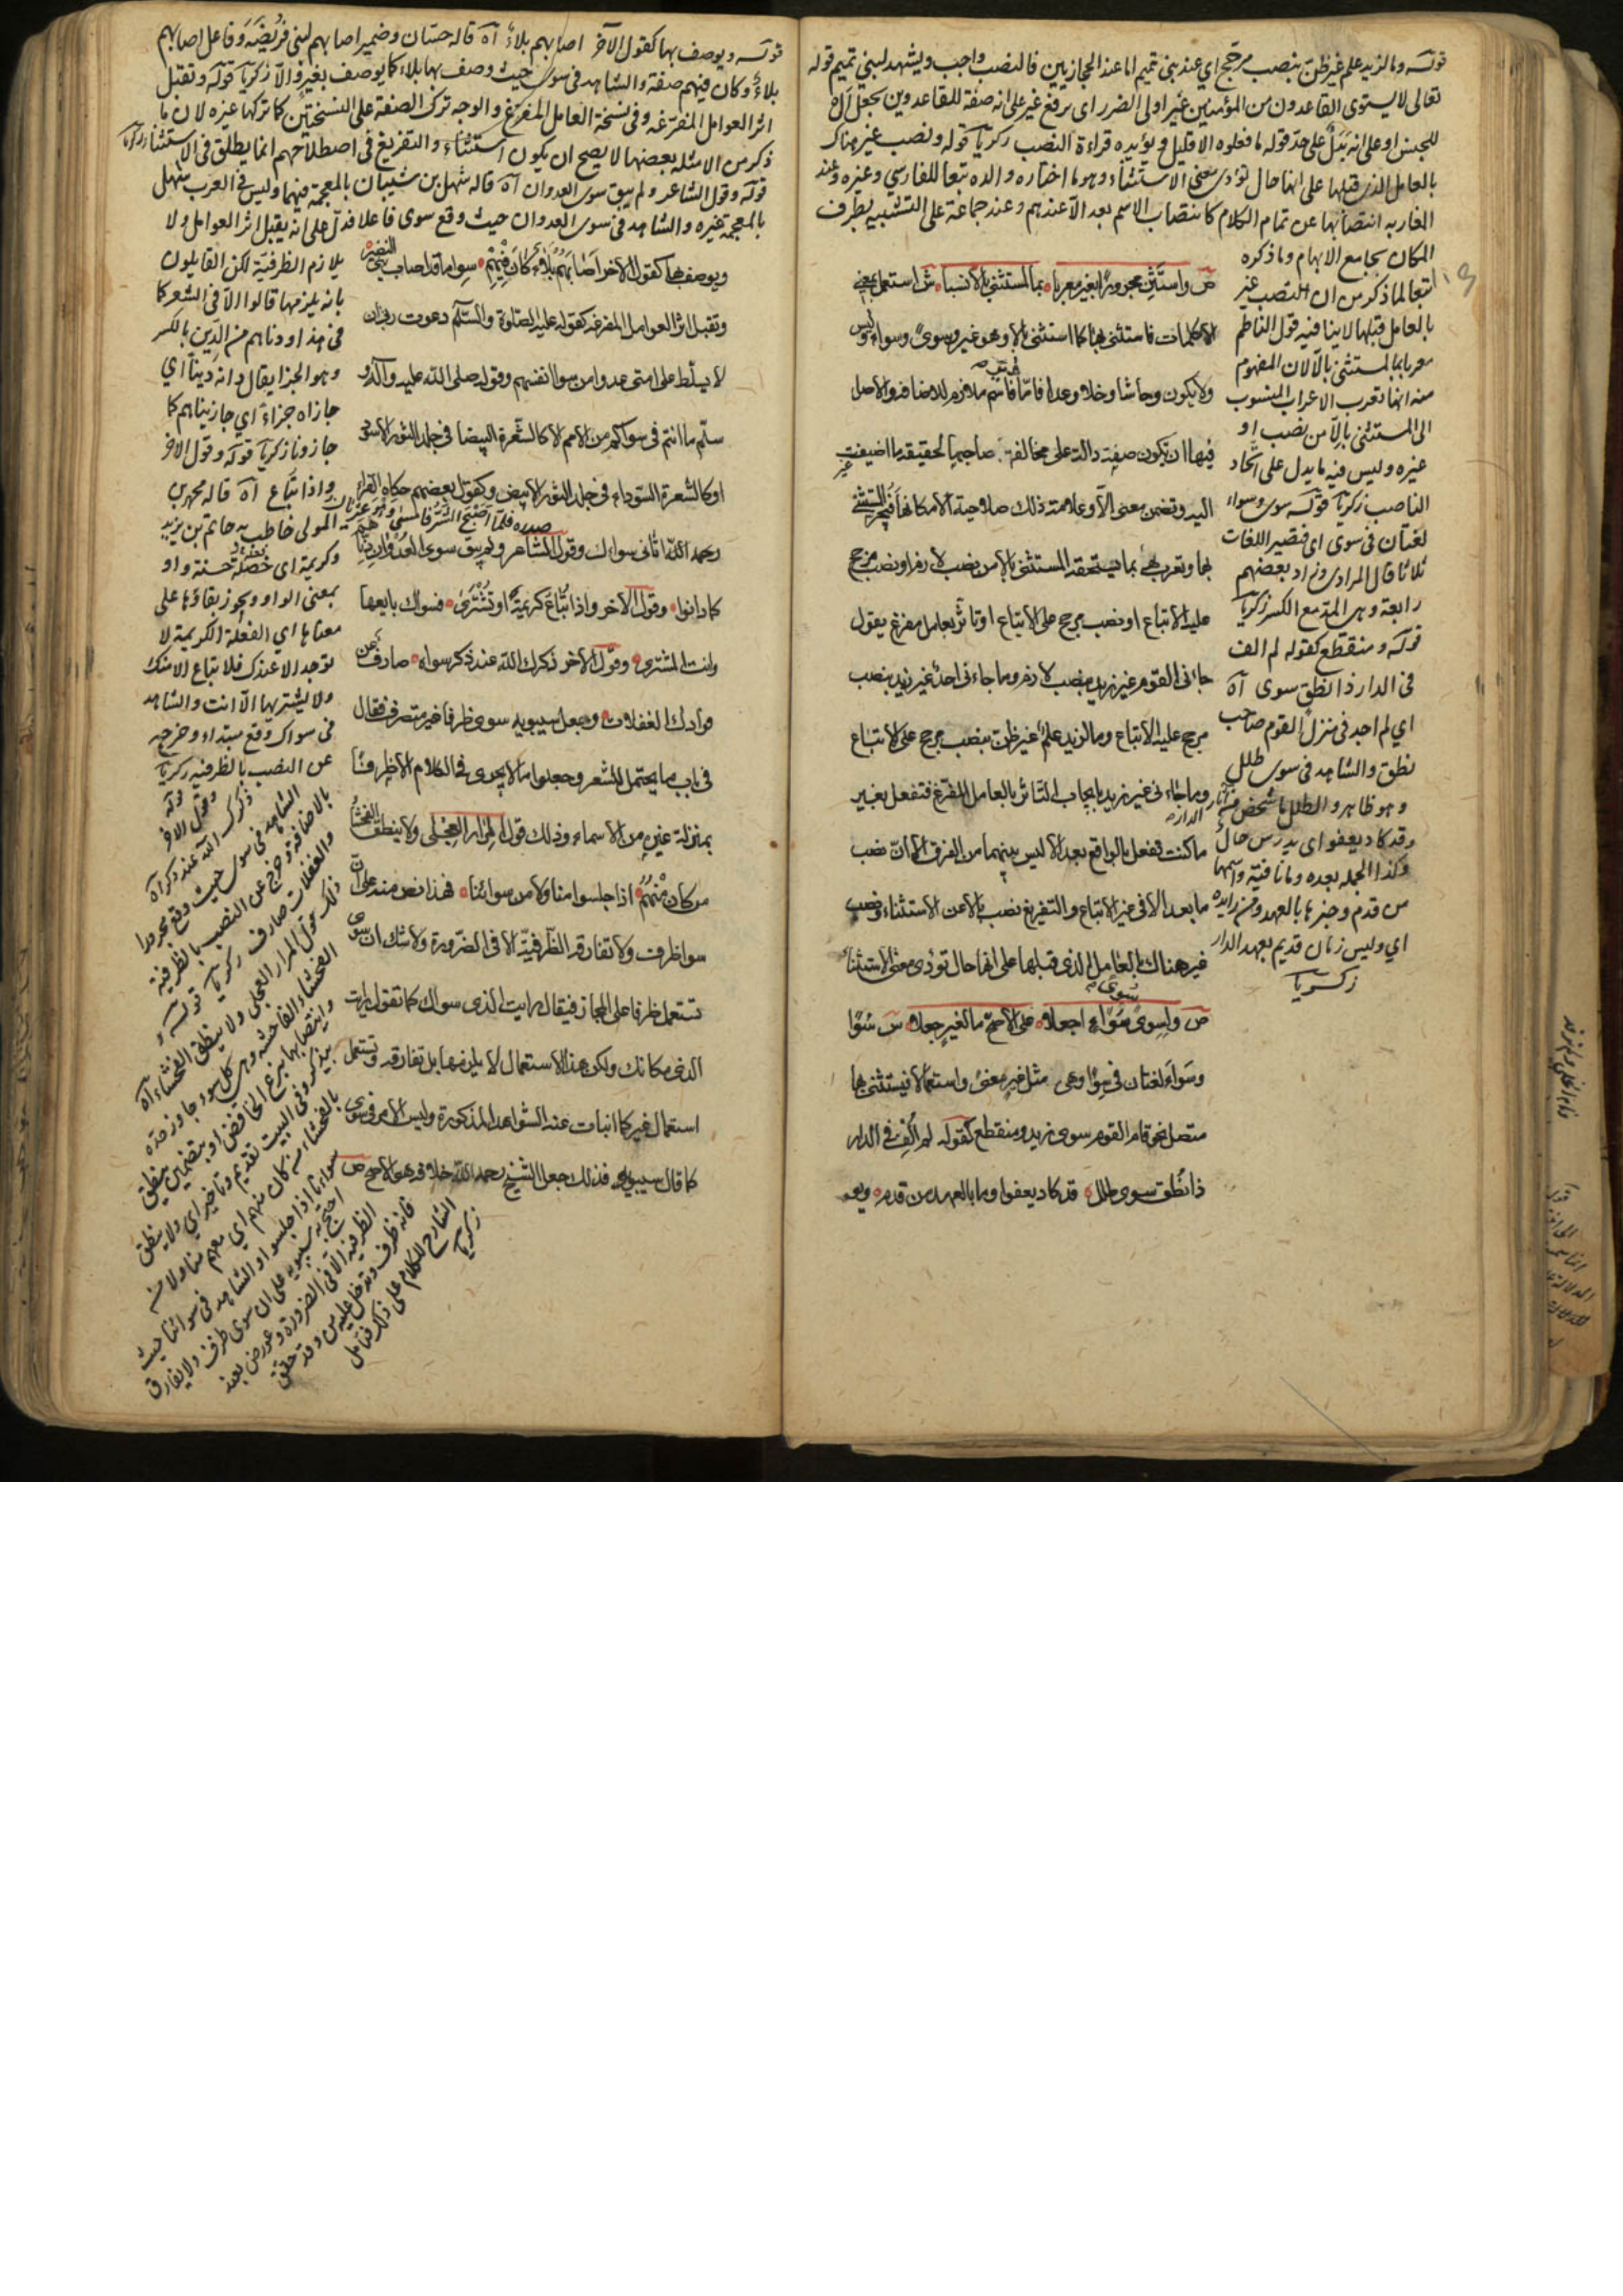 قوله وما لزيد علم غير ظن بنصب مرجح اي عند بني تميم اما عند الحجازيين فالنصب واجب ويشهد لبني تميم قوله
تعالى لا يستوي القاعدون من المؤمنين غير اولى الضرر اى برفع غير على انه صفة للقاعدون بجعل ال
للجنس او على انه بدل على حد قوله ما فعلوه الا قليل ويؤيده قراءة النصب زكريا قوله ونصب غير هناك
بالعامل الذى قبلها على انها حال تؤدى معنى الاستثناء وهو ما اختاره والده تبعا للفارسي وغيره وعند
المغاربه انتصابها عن تمام الكلام كانتصاب الاسم بعد الا عندهم وعند جماعة على التشبيه بظرف
المكان بجامع الابهام وما ذكره
تبعا لما ذكر من ان النصب غير
بالعامل قبلها لا ينافيه قول الناظم
معربا بما لمستثنى بالا لان المفهوم
منه انها تعرب الاعراب المنسوب
الى المستثنى بالا من نصب او
غيره وليس فيه ما يدل على اتحاد
الناصب زكريا قوله سوى وسواء
لغتان فى سوى اى فتصير اللغات
ثلاثا قال المرادى وزاد بعضهم
رابعة وهى المد مع الكسر زكريا
قوله ومنقطع كقوله لم الف
فى الدار ذا نطق سوى آه
اي لم اجد فى منزل القوم صاحب
نطق والشاهد فى سوى طلل
وهو ظاهر والطلل ما شخص من آثار الدار
وقد كاد يعفو اى يدرس حال
وكذا الجملة بعده وما نافية واسمها
من قدم وخبرها بالعهد ومن زايده
اي وليس زمان قديم بعهد الدار
زكريا
ص واستثن مجرورا بغير معربا بما لمستثنى بالا نسبا ش استعمل بمعنى
الا كلمات فاستثنى بها كما استثنى بالا وهو غير وسوى وسواء وليس
ولا يكون وحاشا وخلا وعدا فاما غير فاسم ملازم للاضافه والاصل
فيها ان تكون صفة دالة على مخالفة صاحبها لحقيقة ما اضيفت
اليه وتضمن معنى الا وعلامة ذلك صلاحية الا مكانها فيجر المستثنى
بها وتعرب هى بما يستحقه المستثنى بالا من نصب لازم او نصب مرجح
عليه الاتباع او نصب مرجح على الاتباع او تاثر بعامل مفرغ يقول
جاءنى القوم غير زيد بنصب لازم وما جاءنى احد غير زيد بنصب
مرجح عليه الاتباع وما لزيد علم غير ظن بنصب مرجح على الاتباع
وما جاءنى غير زيد بايجاب التاثر بالعامل المفرغ فتفعل بغير
ما كنت تفعل بالواقع بعد الا ليس بينهما من الفرق الا ان نصب
ما بعد الا فى غير الاتباع والتفريغ نصب بالا عن الاستثناء ونصب
غير هناك بالعامل الذى قبلها على انها حال تؤدى معنى الاستثناء
ص ولسوى سوى سواء اجعلا على الاصح ما لغير جعلا ش سوى
وسواء لغتان فى سوا وهى مثل غير معنى واستعمالا فيستثنى بها
متصل نحو قام القوم سوى زيد ومنقطع كقوله لم الف فى الدار
ذا نطق سوى طلل قد كاد يعفو وما بالعهد من قدم
قوله ويوصف بها كقول الآخر اصابهم بلاء آه قاله حسان وضمير اصابهم لبنى قريضة وفاعل اصابهم
بلاء وكان فيهم صفة والشاهد فى سوى حيث وصف بها بلاء كما يوصف بغير والا زكريا قوله وتقبل
اثر العوامل المفرغه وفى نسخة العامل المفرغ والوجه ترك الصفة على النسختين كما تركها غيره لان ما
ذكر من الامثله بعضها لا يصح ان يكون استثناء والتفريغ فى اصطلاحهم انما يطلق فى الاستثناء زكريا
قوله وقول الشاعر ولم يبق سوى العدوان آه قاله شهل بن شيبان بالمعجمة فيهما وليس فى العرب شهل
بالمعجمة غيره والشاهد فى سوى العدوان حيث وقع سوى فاعلا فدل على انه يقبل اثر العوامل ولا
يلازم الظرفية لكن القايلون
بانه يلزمها قالوا الا فى الشعر كما
فى هذا ودناهم من الدين بالكسر
وهو الجزا يقال دانه دينا اي
جازاه جزاء اي جازيناهم كما
جازونا زكريا قوله وقول الآخر
واذا تباع آه قاله محمد بن
المولى خاطب به حاتم بن يزيد
وكريمة اى خصلة حسنة واو
بمعنى الواو ويجوز بقاؤها على
معناها اي الفعلة الكريمة لا
توجد الا عندك فلا تباع الا منك
ولا يشتريها الا انت والشاهد
فى سواك وقع مبتداء وخرج به
عن النصب بالظرفيه زكريا
ويوصف بها كقول الآخر اصابهم بلاء كان فيهم سوى ما قد اصاب بنى النضير
وتقبل اثر العوامل المفرغه كقوله عليه الصلوة والسلام دعوت ربى ان
لا يسلط على امتى عدوا من سوا انفسهم وقوله صلى الله عليه وآله و
سلم ما انتم فى سواكم من الامم الا كالشعرة البيضا فى جلد الثور الاسود
او كالشعرة السوداء فى جلد الثور الابيض وكقول بعضهم حكاه الفراء
رحمه الله اتانى سواك وقول الشاعر ولم يبق سوى العدوان دناهم
كما دانوا وقول الآخر واذا تباع كريمة او تشترى فسواك بايعها
وانت المشترى وقول الآخر ذكرك الله عند ذكر سواه صارف عن
فوادك الغفلات وجعل سيبويه سوى ظرفا غير متصرف فقال
فى باب ما يحتمل الشعر وجعلوا ما لا يجرى فى الكلام الا ظرفا
بمنزلة غيره من الاسماء وذلك قول المرار العجلى ولا ينطق الفحشا
من كان منهم اذا جلسوا منا ولا من سوائنا فهذا نص منه على ان
سوا ظرف ولا تفارقه الظرفية الا فى الضرورة ولا شك ان سوى
تستعمل ظرفا على المجاز فيقال رايت الذى سواك كما تقول رايت
الذى مكانك ولكن هذا الاستعمال لا يلزمها بل تفارقه وتستعمل
استعمال غير كما انبات عنه الشواهد المذكورة وليس الامر فى سوى
كما قال سيبويه فلذلك جعل الشيخ رحمه الله خلافه هو الاصح ص
قوله
وقول الآخر
ذكرك الله عند ذكر آه
الشاهد فى سوى حيث وقع مجرورا
بالاضافة وخرج عن النصب بالظرفية
والغفلات صارف زكريا قوله و
ذلك قول المرار العجلى ولا ينطق الفحشاء آه
الفحشاء الفاحشه وهى كل سوء جاوز حده
وانتصابها بنزع الخافض او بتضمين ينطق
يذكر وفى البيت تقديم وتاخير اي ولا ينطق
بالفحشاء من كان منهم اي معهم منا ولا من
سوائنا اذا جلسوا والشاهد فى سوائنا حيث
احتج به سيبويه على ان سوى ظرف ولا يفارق
الظرفيه الا فى الضرورة وعورض بعند
فانه ظرف وتدخل عليه من وقد حقق
الشارح الكلام على ذلك فتامل
زكريا